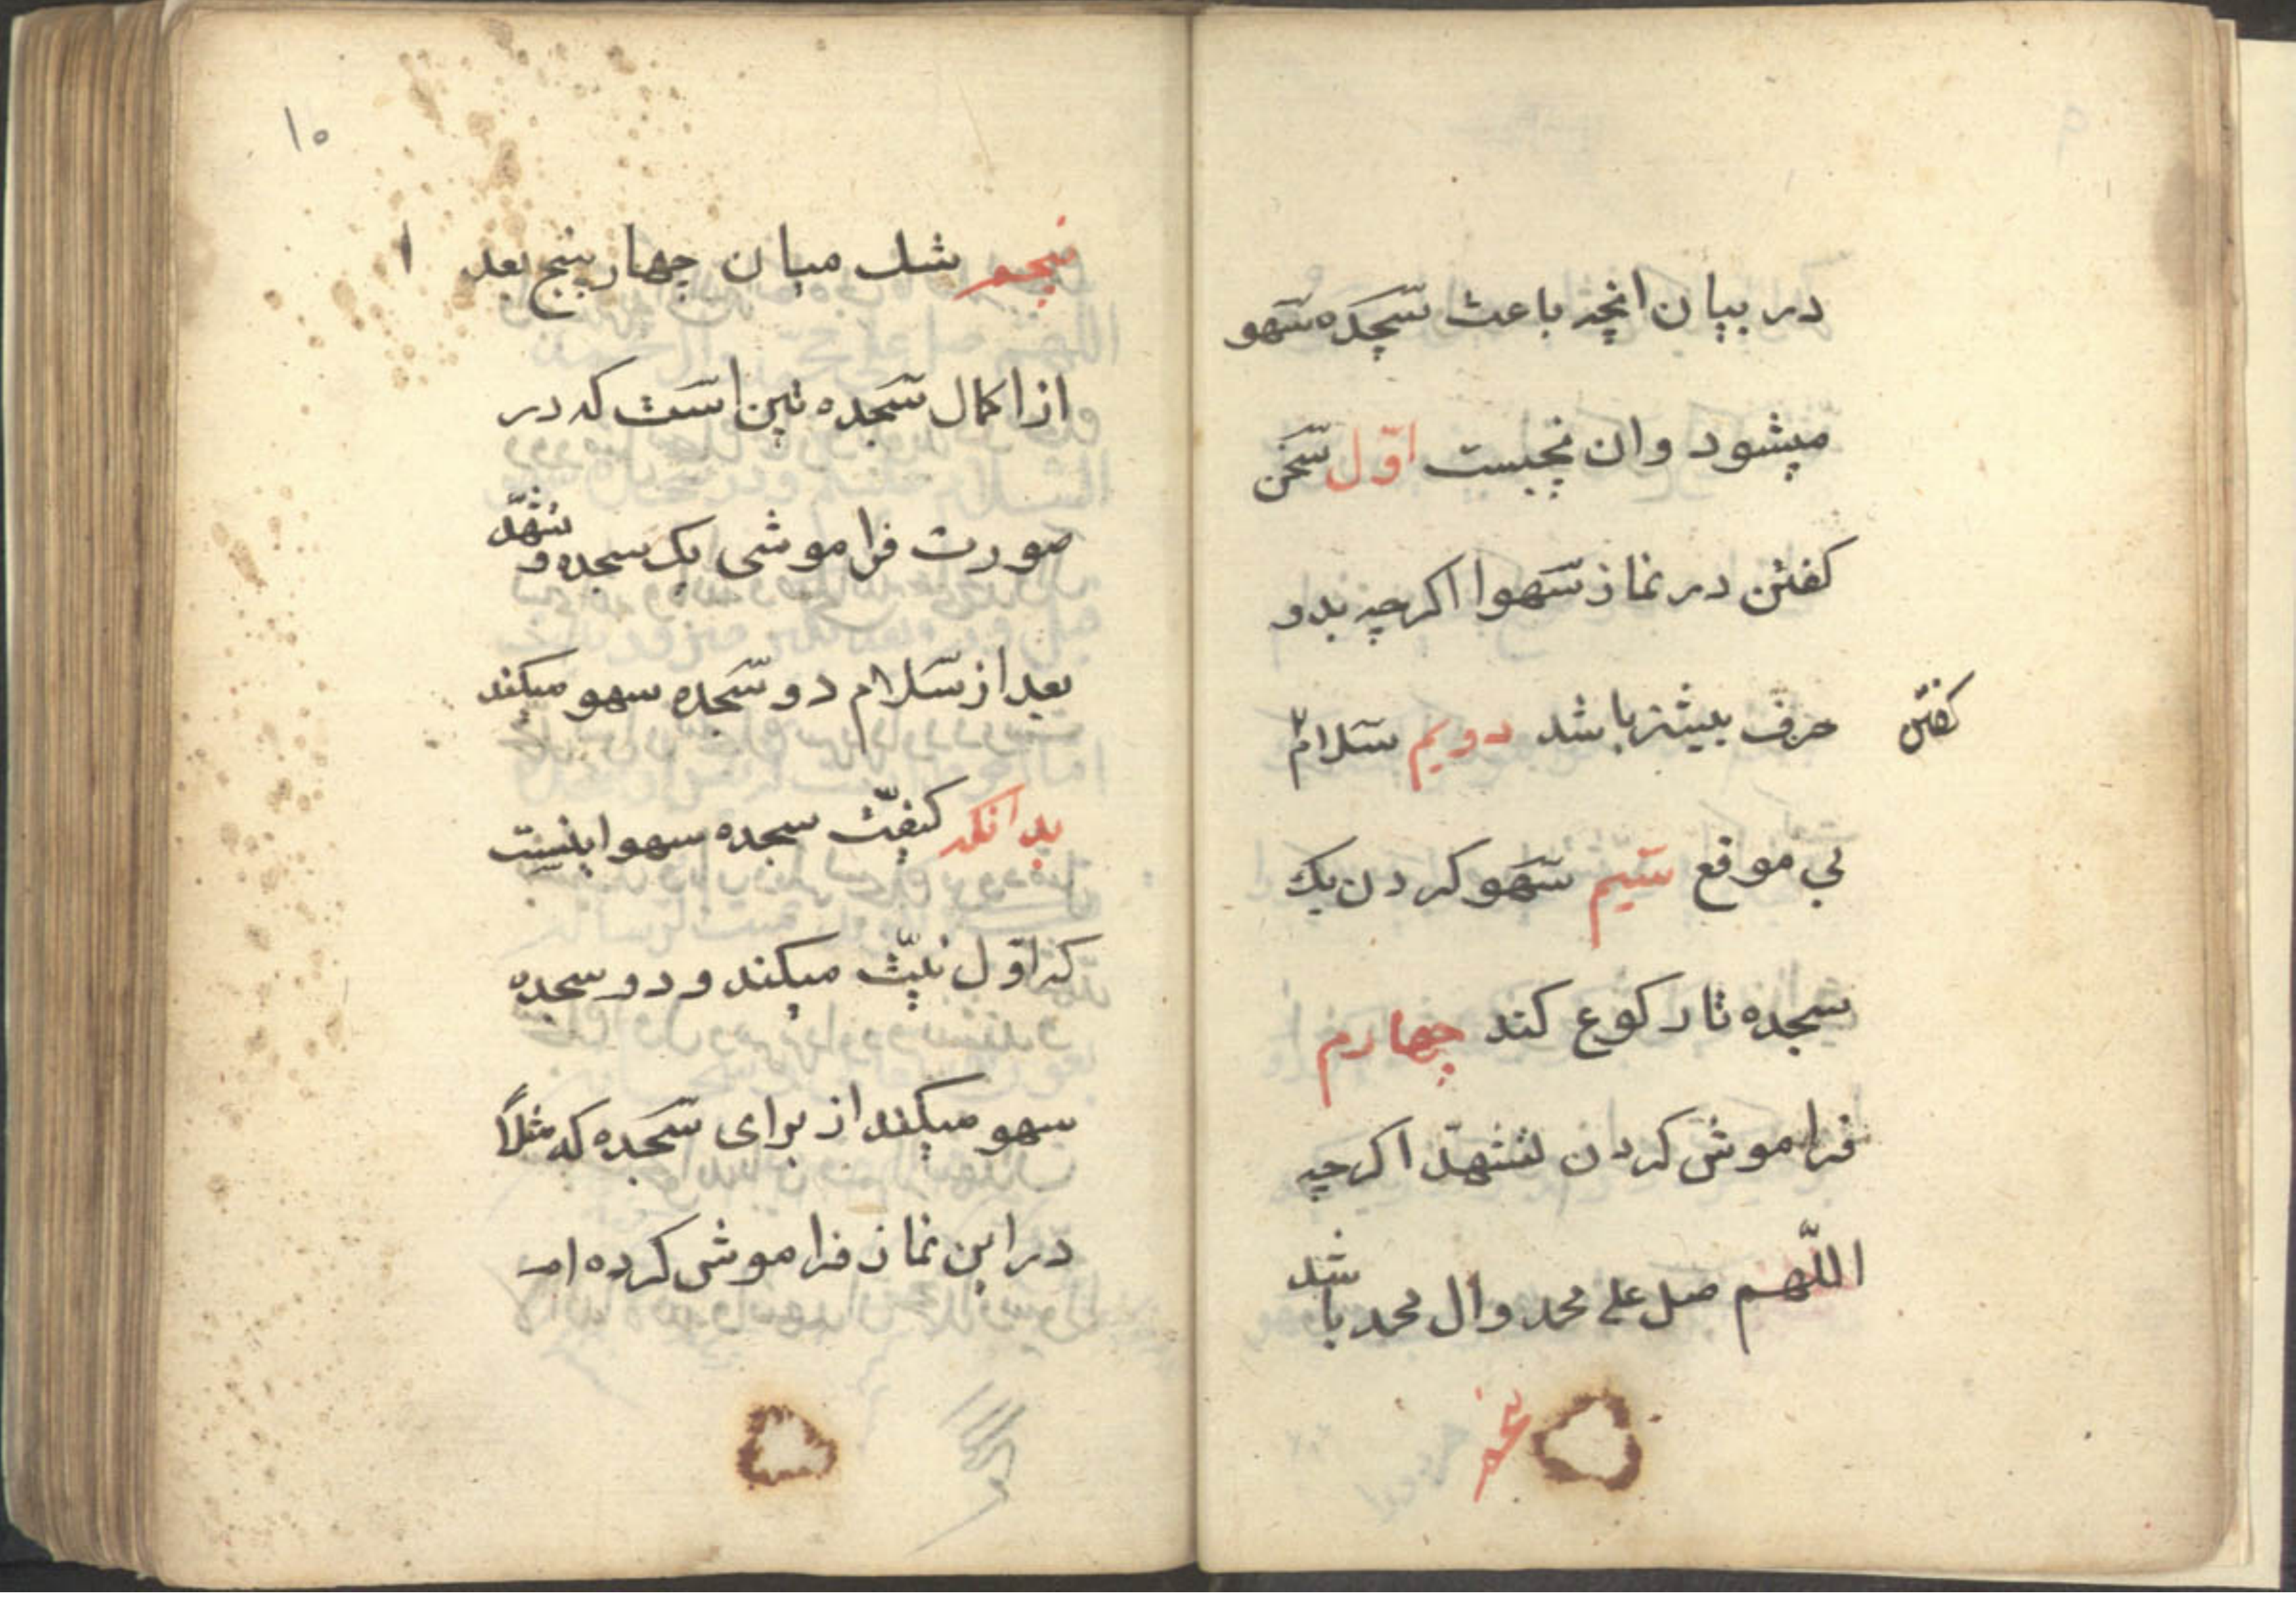 در بیان انچه باعث سجده سهو
میشود وان پنجیست اوّل سخن
کفتن در نماز سهوا اکرچه بدو
حرف بیشتر باشد دویم سلام
کفتن
بی موقع سیم سهو کردن یک
سجده تا رکوع کند چهارم
فراموش کردن تشهّد اکرچه
اللّهم صل علی محمد وال محمد باشد
پنجم
۱۰
پنجم شک میان چهار پنج بعد
از اکمال سجدتین است که در
صورت فراموشی یک سجده و تشهّد
بعد از سلام دو سجده سهو میکند
بدانکه کیفیّت سجده سهو اینست
که اوّل نیّت میکند و دو سجده
سهو میکند از برای سجده که مثلاً
در این نماز فراموش کرده ام